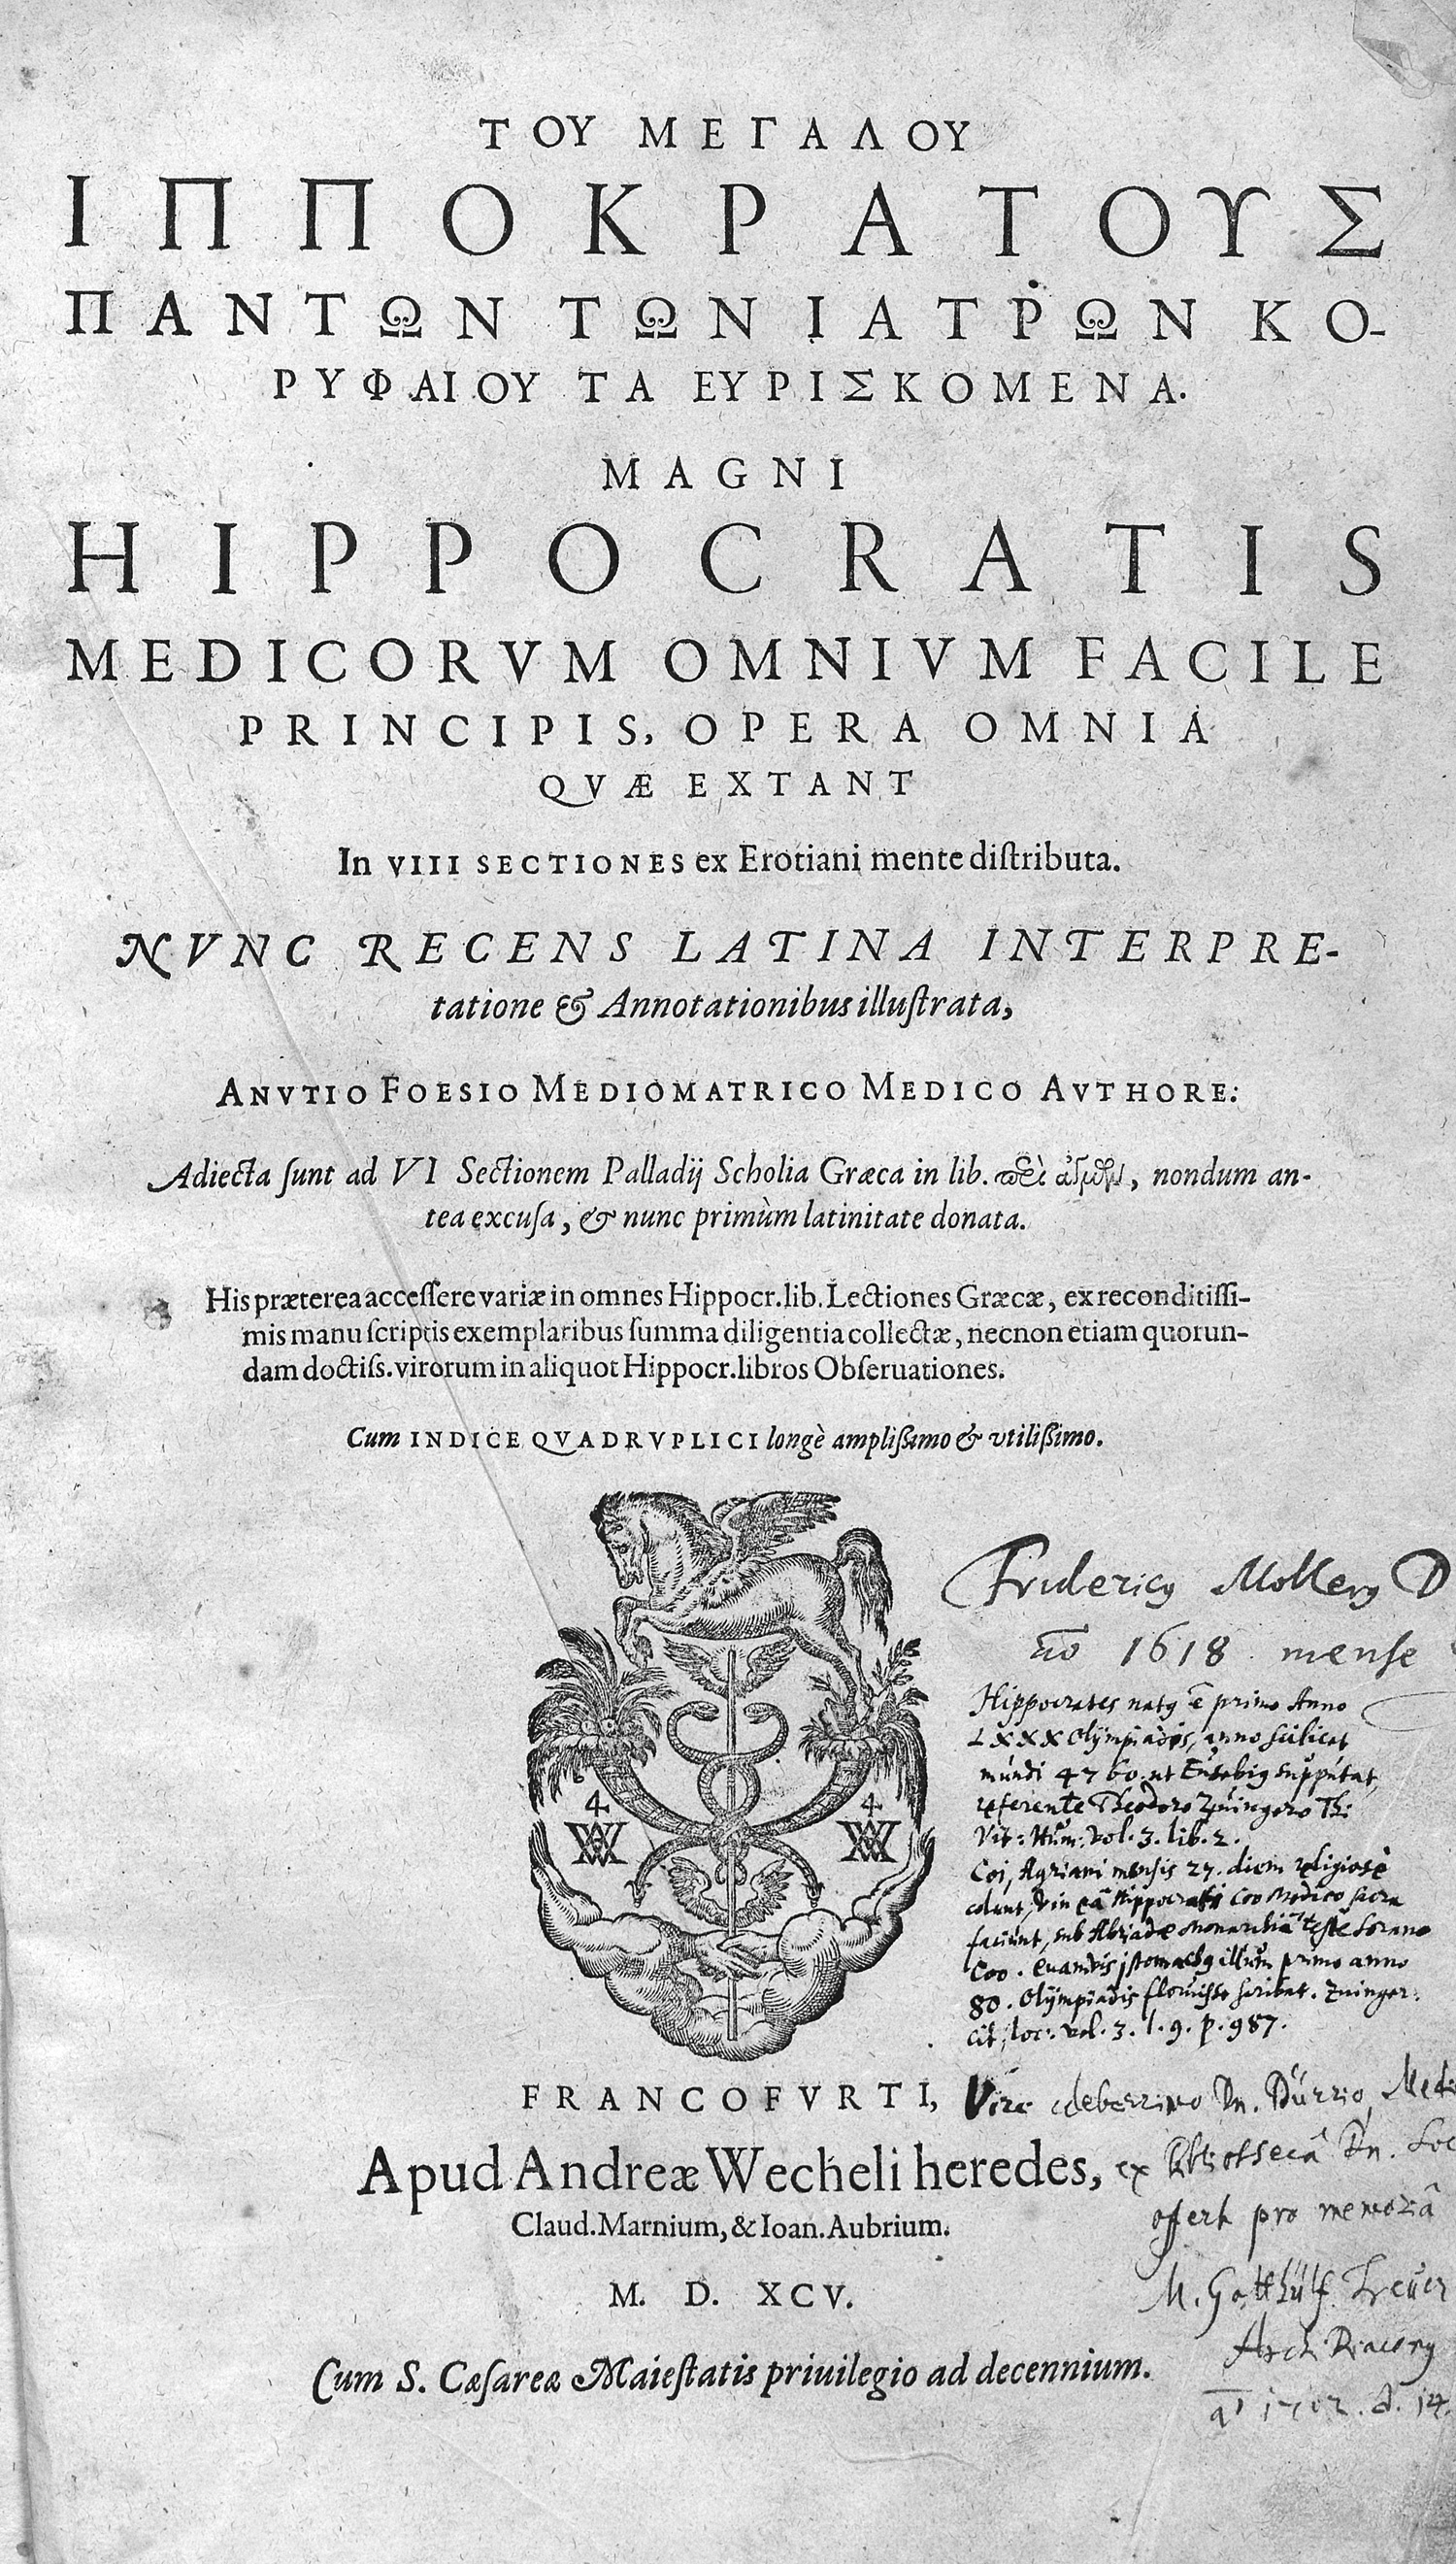 ΤΟΥ ΜΕΓΑΛΟΥ
ΙΠΠΟΚΡΑΤΟΥΣ
ΠΑΝΤΩΝ ΤΩΝ ΙΑΤΡΩΝ ΚΟ-
ΡΥΦΑΙΟΥ ΤΑ ΕΥΡΙΣΚΟΜΕΝΑ.
MAGNI
HIPPOCRATIS
MEDICORVM OMNIVM FACILE
PRINCIPIS, OPERA OMNIA
QVÆ EXTANT
In VIII SECTIONES ex Erotiani mente diſtributa.
NVNC RECENS LATINA INTERPRE-
tatione & Annotationibus illuſtrata,
ANVTIO FOESIO MEDIOMATRICO MEDICO AVTHORE:
Adiecta ſunt ad VI Sectionem Palladij Scholia Græca in lib. περὶ ἀγμῶν, nondum an-
tea excuſa, & nunc primùm latinitate donata.
His præterea acceſſere variæ in omnes Hippocr. lib. Lectiones Græcæ, ex reconditiſſi-
mis manu ſcriptis exemplaribus ſumma diligentia collectæ, necnon etiam quorun-
dam doctiſs. virorum in aliquot Hippocr. libros Obſeruationes.
Cum INDICE QVADRVPLICI longè ampliſsimo & vtiliſsimo.
Fridericus Mollerus D
1618 mense
Hippocrates natus primo Anno
LXXX Olympiadis, anno scilicet
mundi 4760. ut Eusebius supputat,
referente Theodoro Zuingero Th:
Vit: Hum: vol. 3. lib. 2.
Coi, Agriani mensis 27. diem religiosè
colunt, Hippocrati Coo Medico sacra
faciunt, sub Abriadæ Monarchiâ teste Sorano
Coo. illum primo anno
80. Olympiadis floruisse scribat. Zuinger:
cit. loc: vol. 3. l. 9. p. 987.
4 4
W W
FRANCOFVRTI,
Viro celeberrimo Dn. Dürrio,
Apud Andreæ Wecheli heredes,
ex Dn.
Claud. Marnium, & Ioan. Aubrium.
offert pro memoriâ
M. D. XCV.
M. Gotthülf Treuer
Arch Diaconus
Cum S. Cæſareæ Maieſtatis priuilegio ad decennium.
1702. d. 14.